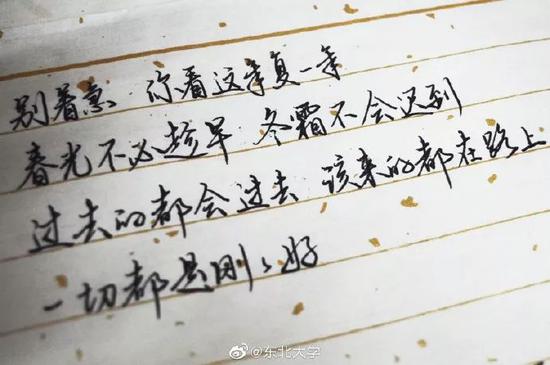 别着急 你看这年复一年
春光不必趁早 冬霜不会迟到
过去的都会过去 该来的都在路上
一切都是刚刚好
@东北大学